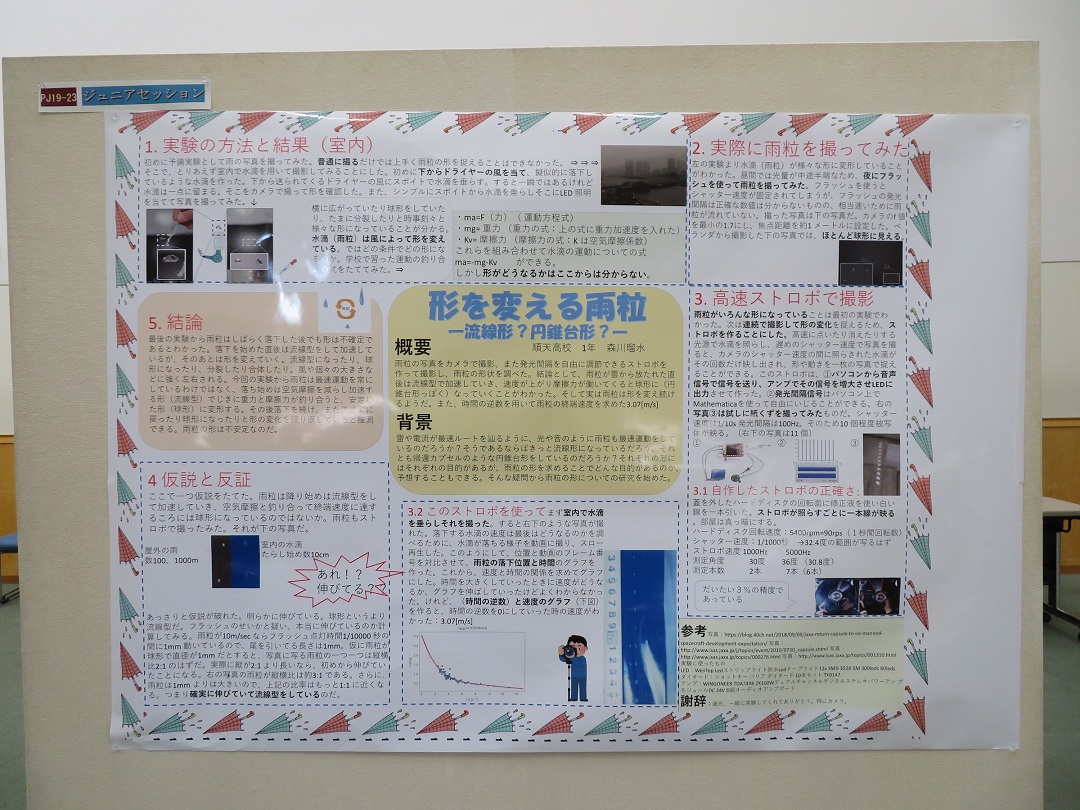 PJ19-23 ジュニアセッション
1. 実験の方法と結果（室内）
初めに予備実験として雨の写真を撮ってみた。普通に撮るだけでは上手く雨粒の形を捉えることはできなかった。⇒⇒⇒
そこで、とりあえず室内で水滴を用いて撮影してみることにした。初めに下からドライヤーの風を当て、擬似的に落下し
ているような水滴を作った。下から送られてくるドライヤーの風にスポイトで水滴を垂らす。すると一瞬ではあるけれど
水滴は一点に留まる。そこをカメラで撮って形を確認した。また、シンプルにスポイトから水滴を垂らしそこにLED 照明
を当てて写真を撮ってみた。↓
横に広がっていたり球形をしていた
り、たまに分裂したりと時事刻々と
様々な形になっていることが分かる。
水滴（雨粒）は風によって形を変え
ている。ではどの条件でどの形にな
学校で習った運動の釣り合
式をたててみた。⇒
・ma=F（力）（運動方程式）
・mg= 重力（重力の式：上の式に重力加速度を入れた）
・Kv= 摩擦力（摩擦力の式：K は空気摩擦係数）
これらを組み合わせて水滴の運動についての式
ma=-mg-Kv ができる。
しかし形がどうなるかはここからは分からない。
2. 実際に雨粒を撮ってみた
左の実験より水滴（雨粒）が様々な形に変形していること
がわかった。昼間では光量が中途半端なため、夜にフラッ
シュを使って雨粒を撮ってみた。フラッシュを使うと
シャッター速度が固定されてしまうが、フラッシュの発光
間隔は正確な数値は分からないものの、相当速いために雨
粒が流れていない。撮った写真は下の写真だ。カメラのf 値
を最小の1.7にし、焦点距離を約1 メートルに設定した。ベ
ランダから撮影した下の写真では、ほとんど球形に見える
形を変える雨粒
ー流線形？円錐台形？ー
順天高校 1年 森川瑠水
概要
雨粒の写真をカメラで撮影、また発光間隔を自由に調節できるストロボを
作って撮影し、雨粒の形状を調べた。結論として、雨粒が雲から放たれた直
後は流線型で加速していき、速度が上がり摩擦力が働いてくると球形に（円
錐台形っぽく）なっていくことがわかった。そして実は雨粒は形を変え続け
るようだ。また、時間の逆数を用いて雨粒の終端速度を求めた3.07[m/s]
背景
雷や電流が最速ルートを辿るように、光や音のように雨粒も最速運動をして
いるのだろうか？そうであるならばきっと流線形になっているだろう。それ
とも帰還カプセルのような円錐台形をしているのだろうか？それぞれの形に
はそれぞれの目的があるが、雨粒の形を求めることでどんな目的があるのか
予想することもできる。そんな疑問から雨粒の形についての研究を始めた。
3. 高速ストロボで撮影
雨粒がいろんな形になっていることは最初の実験でわ
かった。次は連続で撮影して形の変化を捉えるため、ス
トロボを作ることにした。高速に点いたり消えたりする
光源で水滴を照らし、遅めのシャッター速度で写真を撮
ると、カメラのシャッター速度の間に照らされた水滴が
その回数だけ映し出され、形や動きを一枚の写真で捉え
ることができる。このストロボは、①パソコンから音声
信号で信号を送り、アンプでその信号を増大させLEDに
出力させて作った。②発光間隔信号はパソコン上で
Mathematicaを使って自由にいじることができる。右の
写真③は試しに紙くずを撮ってみたものだ。シャッター
速度は1/10s 発光間隔は100Hz。そのため10 個程度被写
体が映る。（右下の写真は11個）
① ② ③
3.1 自作したストロボの正確さ:
蓋を外したハードディスクの回転面に修正液を使い白い
線を一本引いた。ストロボが照らすごとに一本線が映る
。部屋は真っ暗にする。
ハードディスク回転速度：5400rpm=90rps（１秒間回転数）
シャッター速度：1/1000秒 →32.4度の範囲が写るはず
ストロボ速度 1000Hz 5000Hz
測定角度 30度 36度（30.8度）
測定本数 2本 7本（6本）
だいたい３％の精度で
あっている
5. 結論
最後の実験から雨粒はしばらく落下した後でも形は不確定で
あるとわかった。落下を始めた直後は流線型をして加速して
いるが、そのあとは形を変えていく。流線型になったり、球
形になったり、分裂したり合体したり。風や個々の大きさな
どに強く左右される。今回の実験から雨粒は最速運動を常に
しているわけではなく、落ち始めは空気摩擦を減らし加速す
る形（流線型）でじきに重力と摩擦力が釣り合うと、安定し
た形（球形）に変形する。その後落下を続け、また流線型に
戻ったり球形になったりと形の変化を繰り返していると推測
できる。雨粒の形は不安定なのだ。
4 仮説と反証
ここで一つ仮説をたてた。雨粒は降り始めは流線型をし
て加速していき、空気摩擦と釣り合って終端速度に達す
るころには球形になっているのではないか。雨粒もスト
ロボで撮ってみた。それが下の写真だ。
屋外の雨
数100、1000m
室内の水滴
たらし始め数10cm
あれ！？
伸びてる？？
あっさりと仮説が破れた。明らかに伸びている。球形というより
流線型だ。フラッシュのせいかと疑い、本当に伸びているのか計
算してみる。雨粒が10m/sec ならフラッシュ点灯時間1/10000 秒の
間に1mm 動いているので、尾を引いてる長さは1mm。仮に雨粒が
球形で直径が1mm だとすると、写真に写る雨粒の一つ一つは縦横
比2:1 のはずだ。実際に縦が2:1 より長いなら、初めから伸びてい
たことになる。右の写真の雨粒が縦横比は約3:1 である。さらに、
雨粒は1mm よりは大きいので、上記の比率はもっと1:1 に近くな
る。つまり確実に伸びていて流線型をしているのだ。
3.2 このストロボを使ってまず室内で水滴
を垂らしそれを撮った。すると右下のような写真が撮
れた。落下する水滴の速度は最後はどうなるのかを調
べるために、水滴が落ちる様子を動画に撮り、スロー
再生した。このようにして、位置と動画のフレーム番
号を対比させて、雨粒の落下位置と時間のグラフを
作った。これから、速度と時間の関係を求めてグラフ
にした。時間を大きくしていったときに速度がどうな
るか、グラフを伸ばしていったけどよくわからなかっ
た。けれど、（時間の逆数）と速度のグラフ（下図）
を作ると、時間の逆数を0にしていった時の速度がわ
かった：3.07[m/s]
参考
実験に使ったもの
謝辞：遠元、一緒に実験してくれてありがとう。特にカメラ。